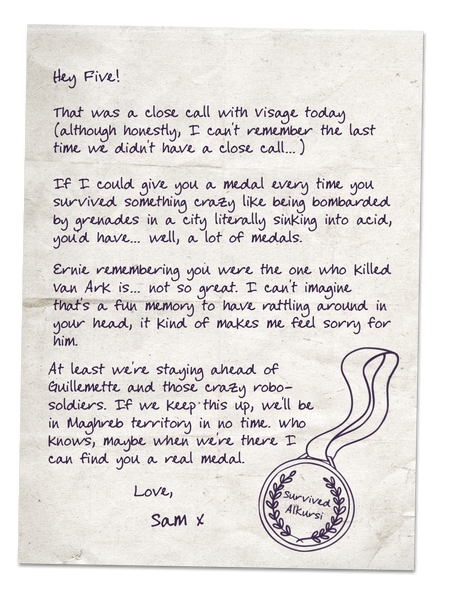 Hey Five!
That was a close call with Visage today
(although honestly, I can't remember the last
time we didn't have a close call...)
If I could give you a medal every time you
survived something crazy like being bombarded
by grenades in a city literally sinking into acid,
you'd have... well, a lot of medals.
Ernie remembering you were the one who killed
van Ark is... not so great. I can't imagine
that's a fun memory to have rattling around in
your head, it kind of makes me feel sorry for
him.
At least we're staying ahead of
Guillemette and those crazy robo-
soldiers. If we keep this up, we'll be
in Maghreb territory in no time. Who
knows, maybe when we're there I
can find you a real medal.
Love,
Sam x
Survived
Alkursi